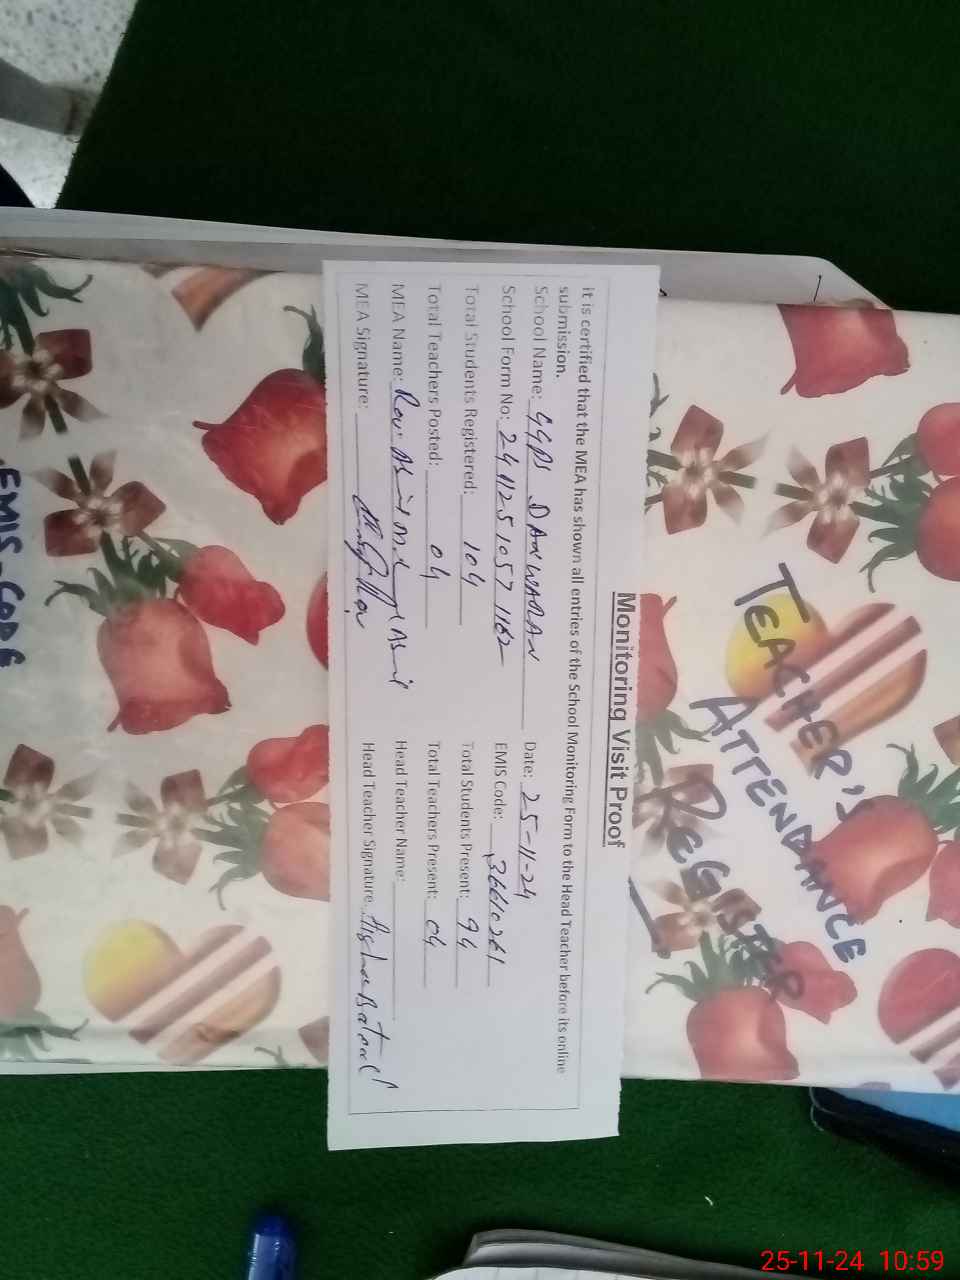 Monitoring Visit Proof
It is certified that the MEA has shown all entries of the School Monitoring Form to the Head Teacher before its online
submission.
School Name: GGPS DANWARAN Date: 25-11-24
School Form No: 24112510571162 EMIS Code: 36610261
Total Students Registered: 104 Total Students Present: 94
Total Teachers Posted: 04 Total Teachers Present: 04
MEA Name: Head Teacher Name:
MEA Signature: Head Teacher Signature:
TEACHER'S
ATTENDANCE
REGISTER
EMIS-CODE
25-11-24 10:59